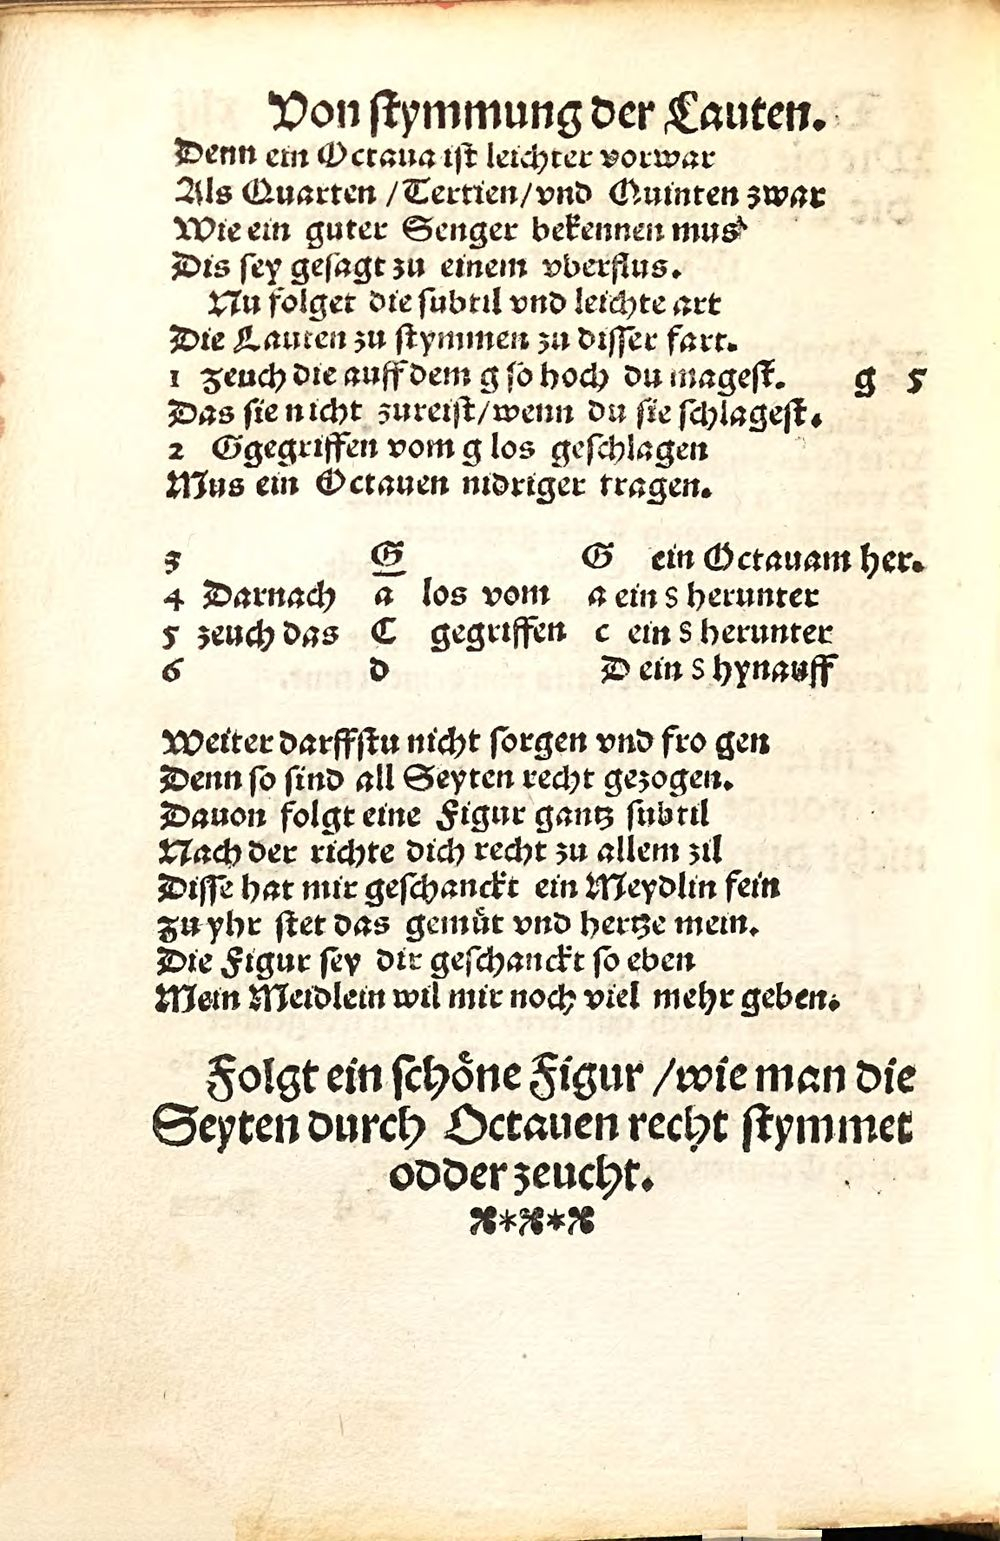 Von stymmung der Lauten.
Denn ein Octaua ist leichter vorwar
Als Quarten /Tertien/vnd Quinten zwar
Wie ein guter Senger bekennen mus
Dis sey gesagt zu einem vberflus.
Nu folget die subtil vnd leichte art
Die Lauten zu stymmen zu disser fart.
1 Zeuch die auff dem g so hoch du magest. g 5
Das sie nicht zureist/wenn du sie schlagest.
2 Ggegriffen vom g los geschlagen
Mus ein Octauen nidriger tragen.
3 G G ein Octauam her.
4 Darnach a los vom a ein 8 herunter
5 zeuch das C gegriffen c ein 8 herunter
6 d D ein 8 hynauff
Weiter darffstu nicht sorgen vnd fro gen
Denn so sind all Seyten recht gezogen.
Dauon folgt eine Figur gantz subtil
Nach der richte dich recht zu allem zil
Disse hat mir geschanckt ein Meydlin fein
Zu yhr stet das gemüt vnd hertze mein.
Die Figur sey dir geschanckt so eben
Mein Meidlein wil mir noch viel mehr geben.
Folgt ein schöne Figur /wie man die
Seyten durch Octauen recht stymmet
odder zeucht.